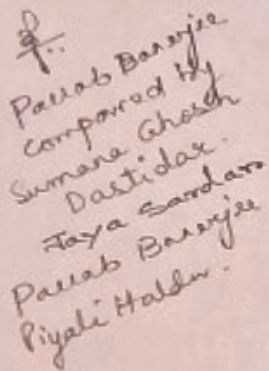 Pallab Banerjee
compared by
Sumana Ghosh
Dastidar.
Jaya Sardar
Pallab Banerjee
Piyali Halder.